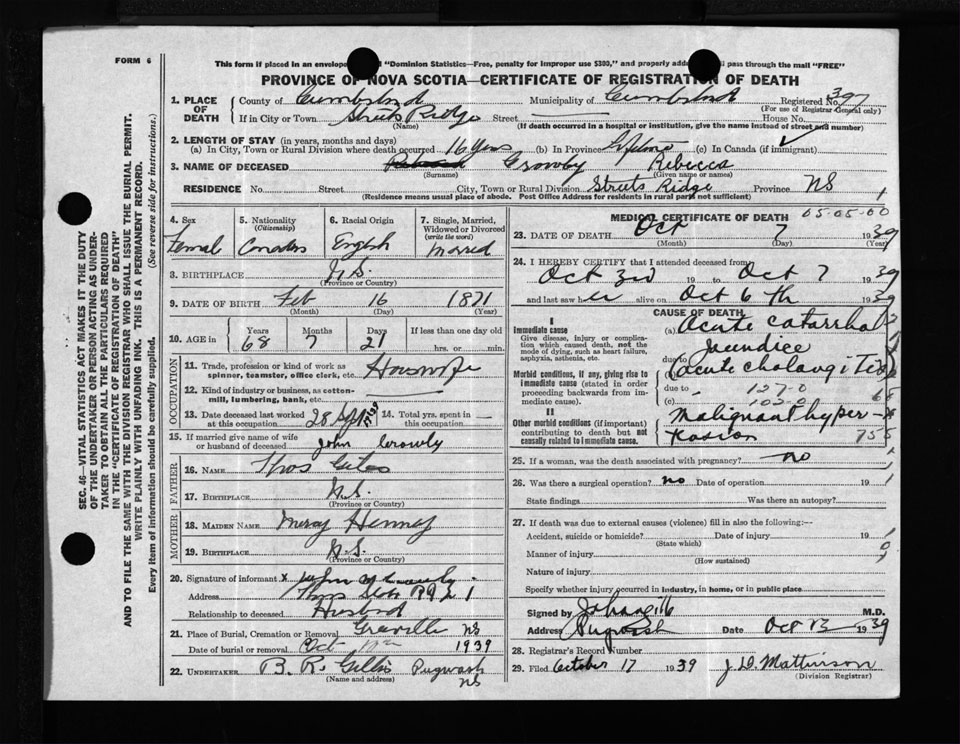 FORM 6
This form if placed in an envelope "Dominion Statistics—Free, penalty for improper use $300," and properly pass through the mail "FREE"
PROVINCE OF NOVA SCOTIA—CERTIFICATE OF REGISTRATION OF DEATH
1. PLACE OF DEATH County of Cumberland Municipality of Cumberland Registered No. 397
(For use of Registrar General only)
If in City or Town Ridge Street House No.
(Name) (If death occurred in a hospital or institution, give the name instead of street and number)
2. LENGTH OF STAY (in years, months and days)
(a) In City, Town or Rural Division where death occurred 16 years (b) In Province (c) In Canada (if immigrant)
3. NAME OF DECEASED Crowby Rebecca
(Surname) (Given name or names)
RESIDENCE No. Street City, Town or Rural Division Ridge Province NS
(Residence means usual place of abode. Post Office Address for residents in rural parts not sufficient) 1
4. Sex 5. Nationality 6. Racial Origin 7. Single, Married, Widowed or Divorced
(Citizenship) (write the word)
Female English Married
8. BIRTHPLACE N.S.
(Province or Country)
9. DATE OF BIRTH Feb 16 1871
(Month) (Day) (Year)
10. AGE in Years Months Days If less than one day old
68 7 21 hrs. or min.
OCCUPATION
11. Trade, profession or kind of work as spinner, teamster, office clerk, etc. Housewife
12. Kind of industry or business, as cotton-mill, lumbering, bank, etc.
13. Date deceased last worked at this occupation 28 Sept 1939 14. Total yrs. spent in this occupation —
15. If married give name of wife or husband of deceased John Crowly
FATHER
16. NAME Thos
17. BIRTHPLACE N.S.
(Province or Country)
MOTHER
18. MAIDEN NAME
19. BIRTHPLACE N.S.
(Province or Country)
20. Signature of informant x John
Address 1
Relationship to deceased Husband
21. Place of Burial, Cremation or Removal NS
Date of burial or removal Oct 1939
22. UNDERTAKER B. R. Gillis Pugwash NS
(Name and address)
MEDICAL CERTIFICATE OF DEATH 05-05-00
23. DATE OF DEATH Oct 7 1939
(Month) (Day) (Year)
24. I HEREBY CERTIFY that I attended deceased from
Oct 3rd 19 to Oct 7 1939
and last saw her alive on Oct 6th 1939
CAUSE OF DEATH
I
Immediate cause (a) Acute catarrhal jaundice
Give disease, injury or complication which caused death, not the mode of dying, such as heart failure, asphyxia, asthenia, etc.
due to acute cholangitis
Morbid conditions, if any, giving rise to immediate cause (stated in order proceeding backwards from immediate cause).
due to 127-0
(c) 102-0
II
Other morbid conditions (if important) contributing to death but not causally related to immediate cause.
Malignant hyper-
755
25. If a woman, was the death associated with pregnancy? no
26. Was there a surgical operation? no Date of operation 19
State findings Was there an autopsy?
27. If death was due to external causes (violence) fill in also the following:—
Accident, suicide or homicide? Date of injury 19
(State which)
Manner of injury
(How sustained)
Nature of injury
Specify whether injury occurred in industry, in home, or in public place
Signed by M.D.
Address Pugwash Date Oct 13 1939
28. Registrar's Record Number
29. Filed October 17 1939 J. D. Mathinson
(Division Registrar)
SEC. 46—VITAL STATISTICS ACT MAKES IT THE DUTY
OF THE UNDERTAKER OR PERSON ACTING AS UNDER-
TAKER TO OBTAIN ALL THE PARTICULARS REQUIRED
IN THE "CERTIFICATE OF REGISTRATION OF DEATH"
AND TO FILE THE SAME WITH THE DIVISION REGISTRAR WHO SHALL ISSUE THE BURIAL PERMIT.
WRITE PLAINLY WITH UNFADING INK. THIS IS A PERMANENT RECORD.
Every item of information should be carefully supplied. (See reverse side for instructions.)